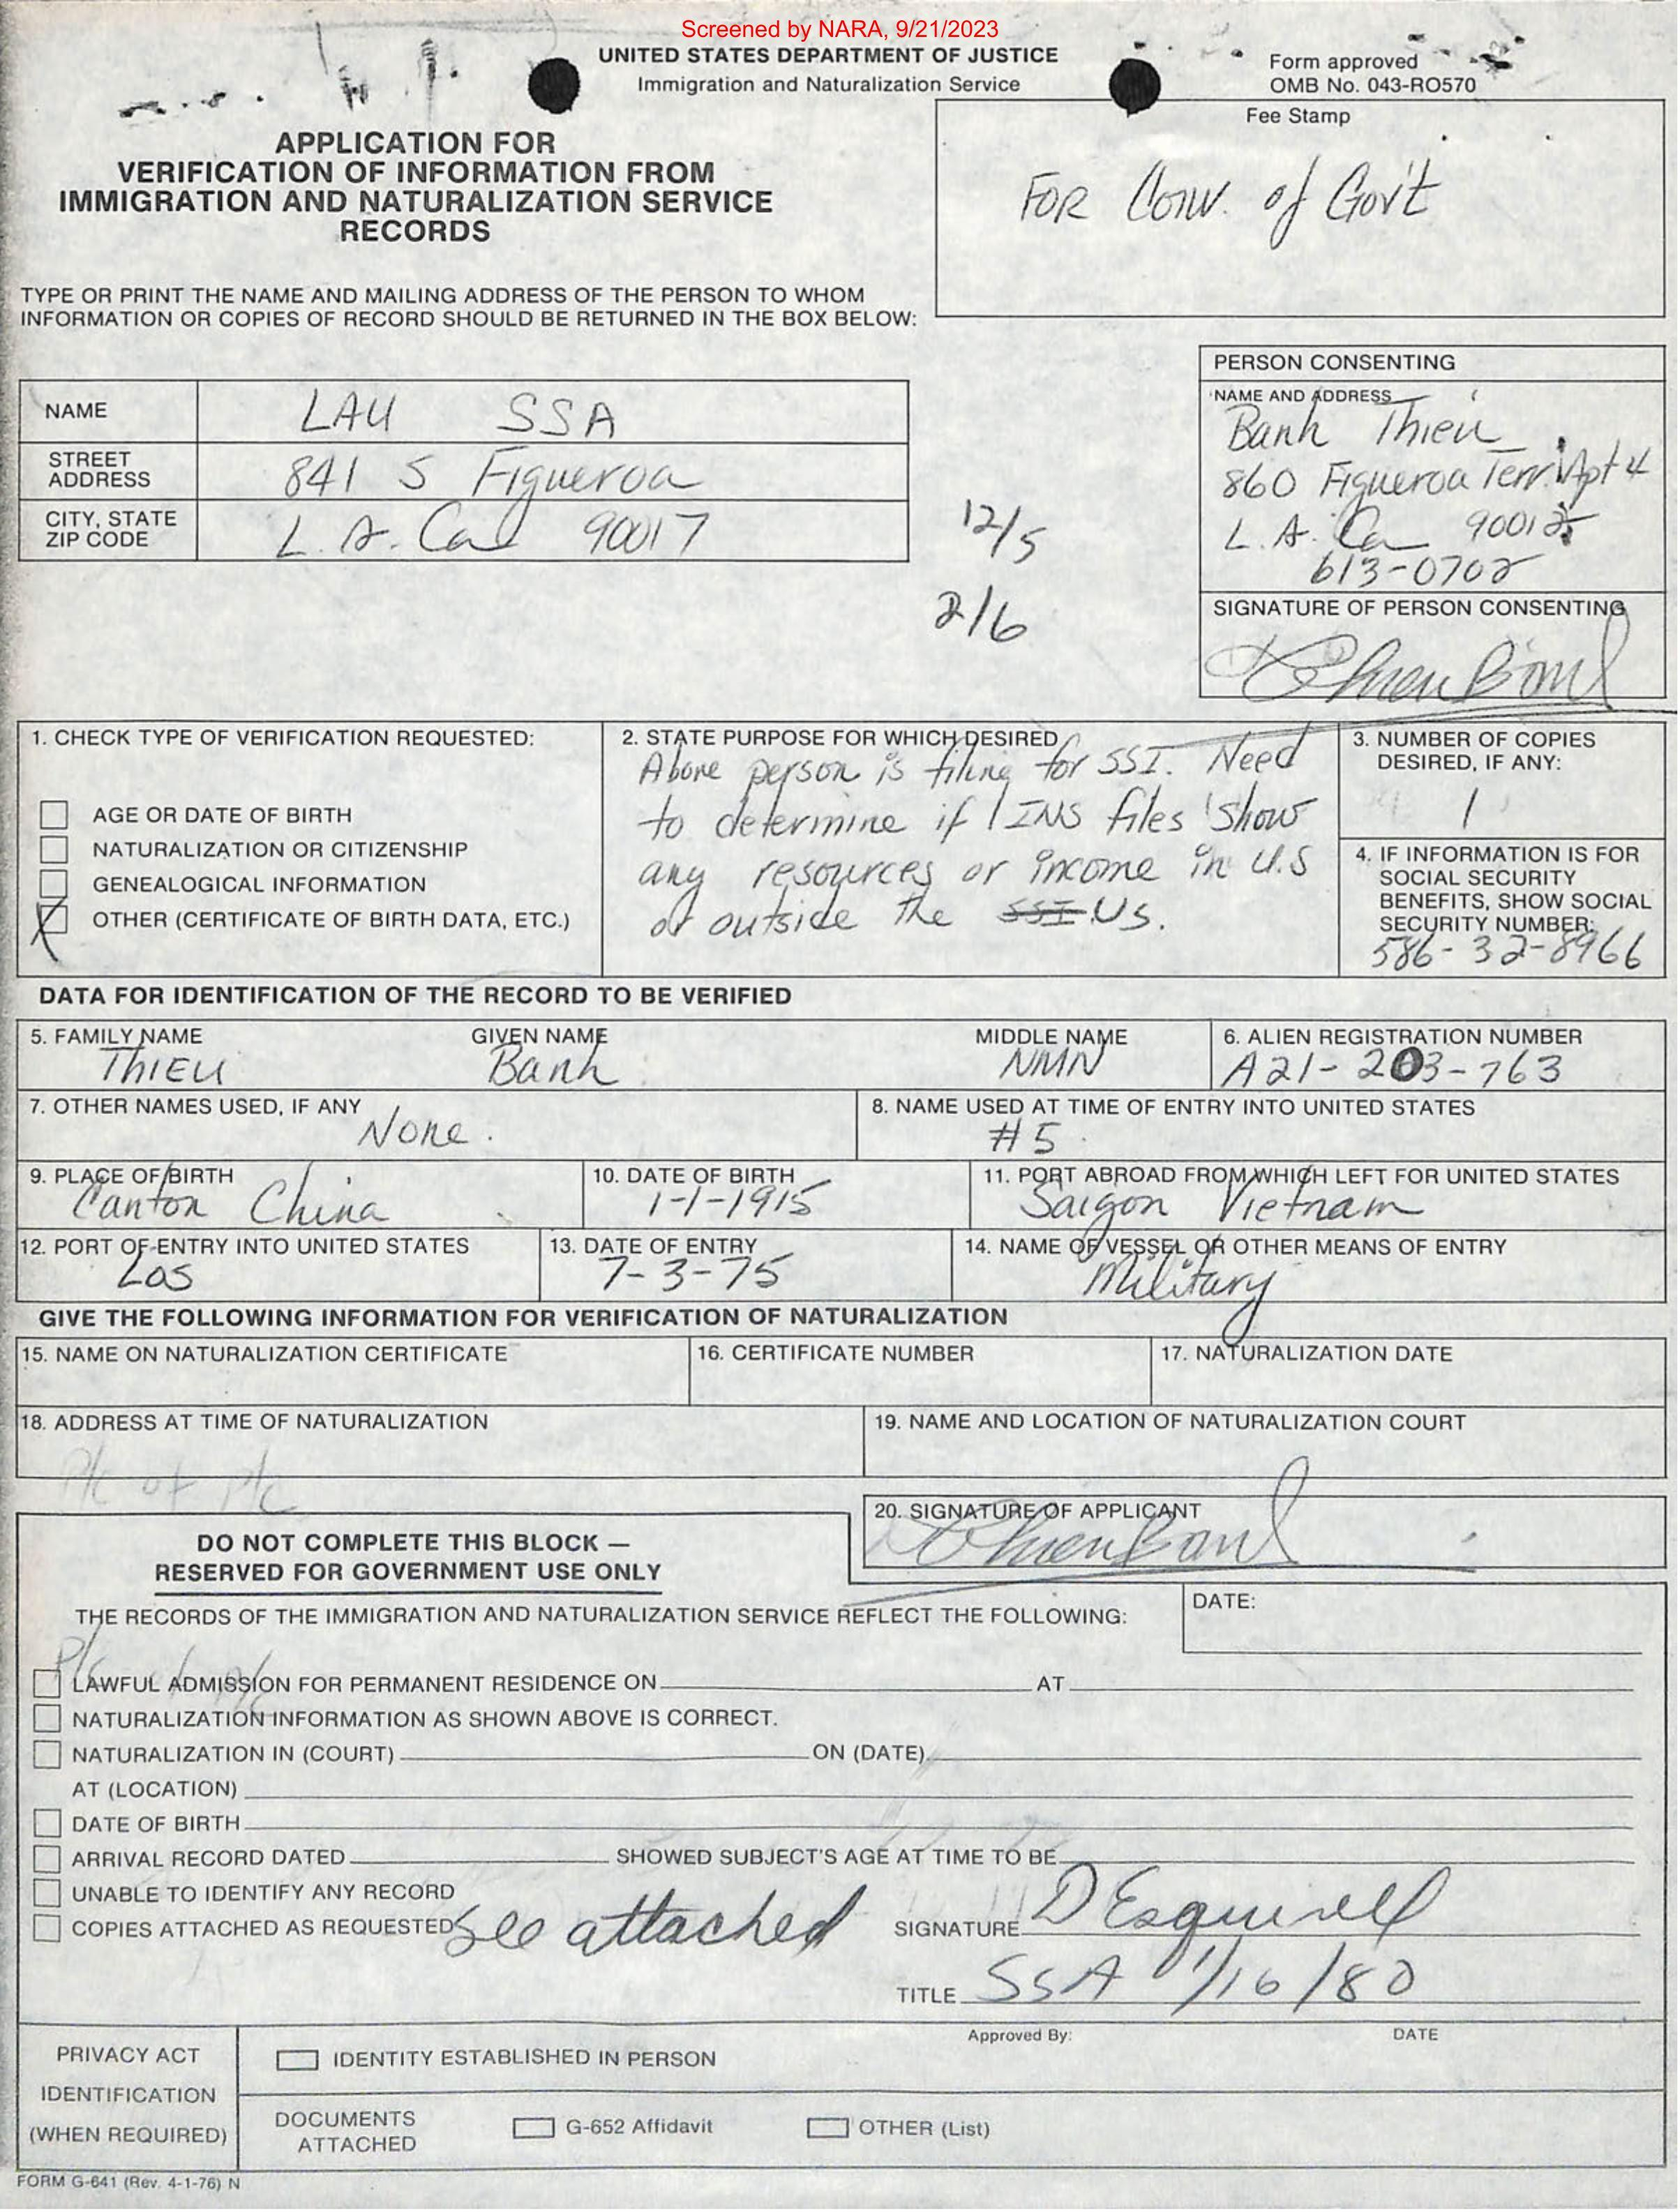 Screened by NARA, 9/21/2023
UNITED STATES DEPARTMENT OF JUSTICE
Immigration and Naturalization Service
Form approved
OMB No. 043-RO570
Fee Stamp
FOR Conv. of Gov't
APPLICATION FOR
VERIFICATION OF INFORMATION FROM
IMMIGRATION AND NATURALIZATION SERVICE
RECORDS
TYPE OR PRINT THE NAME AND MAILING ADDRESS OF THE PERSON TO WHOM
INFORMATION OR COPIES OF RECORD SHOULD BE RETURNED IN THE BOX BELOW:
NAME LAU SSA
STREET
ADDRESS 841 S Figueroa
CITY, STATE
ZIP CODE L.A. Ca 90017
12/5
2/6
PERSON CONSENTING
NAME AND ADDRESS
Banh Thieu
860 Figueroa Terr. Apt 4
L.A. Ca 90012
613-0702
SIGNATURE OF PERSON CONSENTING
1. CHECK TYPE OF VERIFICATION REQUESTED:
AGE OR DATE OF BIRTH
NATURALIZATION OR CITIZENSHIP
GENEALOGICAL INFORMATION
X OTHER (CERTIFICATE OF BIRTH DATA, ETC.)
2. STATE PURPOSE FOR WHICH DESIRED
Above person is filing for SSI. Need
to determine if INS files show
any resources or income in U.S
or outside the SSI US.
3. NUMBER OF COPIES
DESIRED, IF ANY:
1
4. IF INFORMATION IS FOR
SOCIAL SECURITY
BENEFITS, SHOW SOCIAL
SECURITY NUMBER:
586-32-8966
DATA FOR IDENTIFICATION OF THE RECORD TO BE VERIFIED
5. FAMILY NAME GIVEN NAME MIDDLE NAME
THIEU Banh NMN
6. ALIEN REGISTRATION NUMBER
A21-203-763
7. OTHER NAMES USED, IF ANY
None.
8. NAME USED AT TIME OF ENTRY INTO UNITED STATES
#5
9. PLACE OF BIRTH
Canton China
10. DATE OF BIRTH
1-1-1915
11. PORT ABROAD FROM WHICH LEFT FOR UNITED STATES
Saigon Vietnam
12. PORT OF ENTRY INTO UNITED STATES
Los
13. DATE OF ENTRY
7-3-75
14. NAME OF VESSEL OR OTHER MEANS OF ENTRY
Military
GIVE THE FOLLOWING INFORMATION FOR VERIFICATION OF NATURALIZATION
15. NAME ON NATURALIZATION CERTIFICATE
16. CERTIFICATE NUMBER
17. NATURALIZATION DATE
18. ADDRESS AT TIME OF NATURALIZATION
19. NAME AND LOCATION OF NATURALIZATION COURT
P/c of P/c
20. SIGNATURE OF APPLICANT
DO NOT COMPLETE THIS BLOCK —
RESERVED FOR GOVERNMENT USE ONLY
THE RECORDS OF THE IMMIGRATION AND NATURALIZATION SERVICE REFLECT THE FOLLOWING:
DATE:
LAWFUL ADMISSION FOR PERMANENT RESIDENCE ON AT
NATURALIZATION INFORMATION AS SHOWN ABOVE IS CORRECT.
NATURALIZATION IN (COURT) ON (DATE)
AT (LOCATION)
DATE OF BIRTH
ARRIVAL RECORD DATED SHOWED SUBJECT'S AGE AT TIME TO BE
UNABLE TO IDENTIFY ANY RECORD
COPIES ATTACHED AS REQUESTED See attached
SIGNATURE D Esquivell
TITLE SSA 1/16/80
Approved By: DATE
PRIVACY ACT
IDENTIFICATION
(WHEN REQUIRED)
IDENTITY ESTABLISHED IN PERSON
DOCUMENTS
ATTACHED
G-652 Affidavit
OTHER (List)
FORM G-641 (Rev. 4-1-76) N